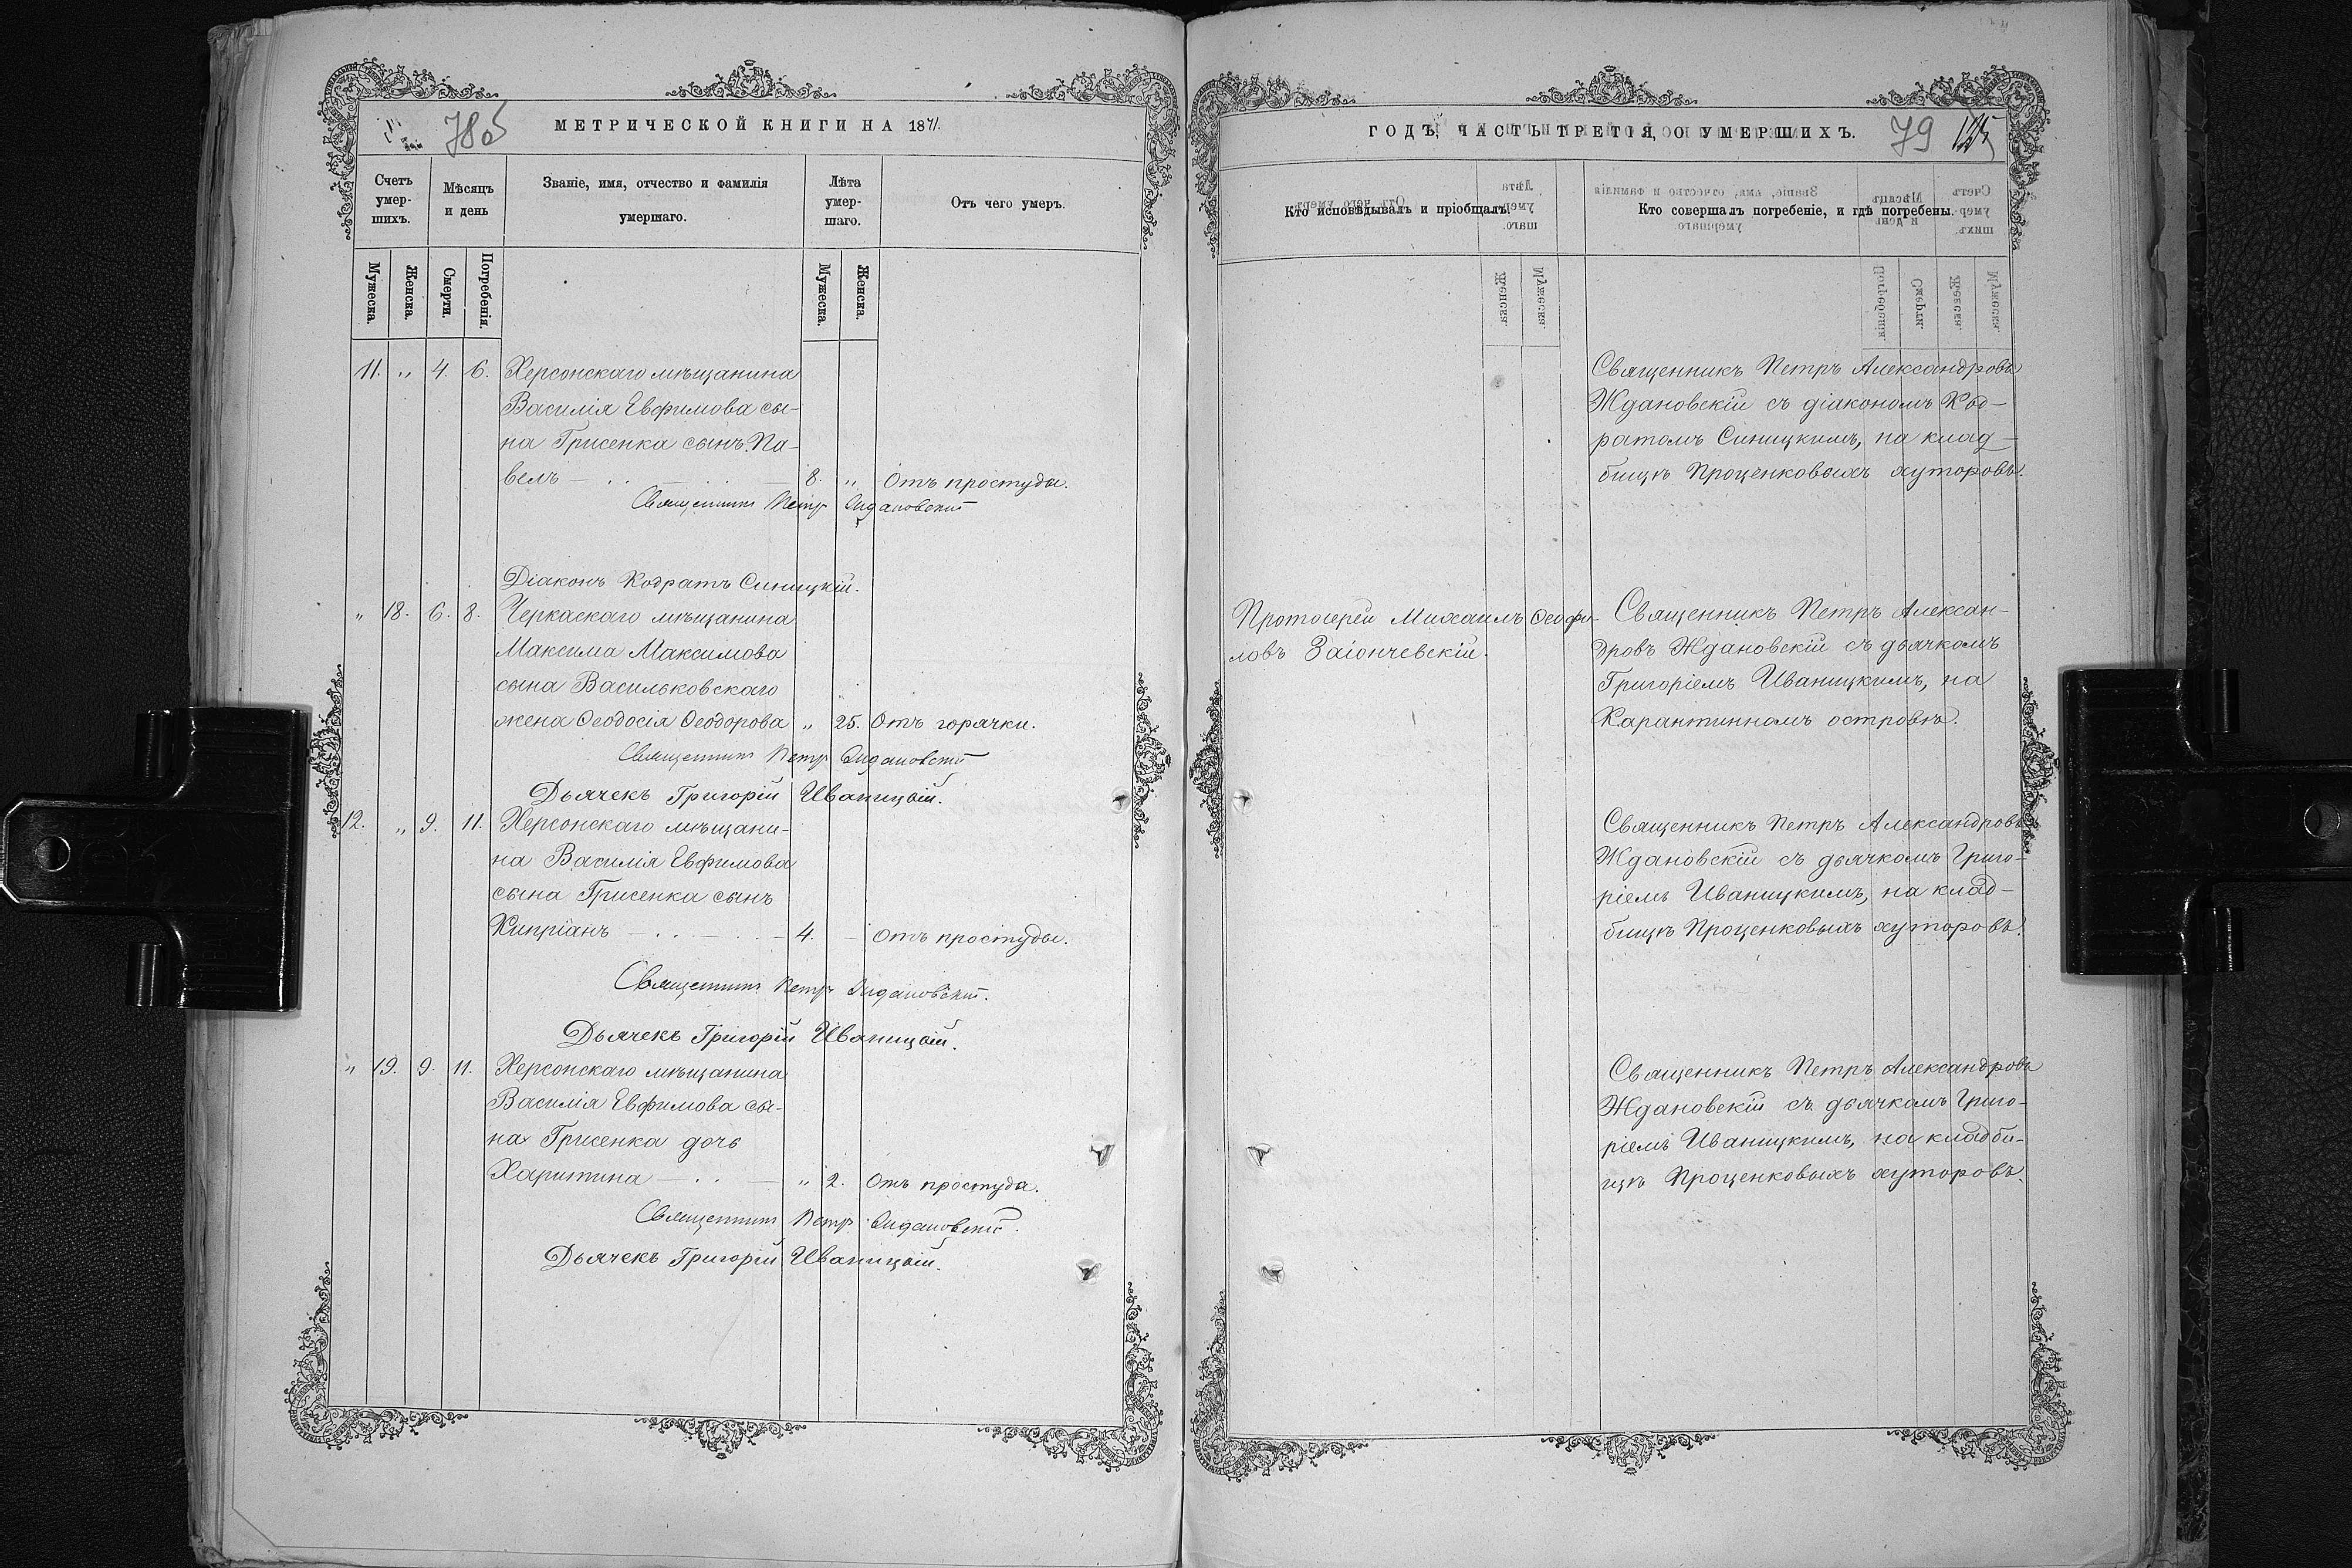 78об
МЕТРИЧЕСКОЙ КНИГИ НА 1871.
Счетъ умер-шихъ.
Мѣсяцъ и день
Званіе, имя, отчество и фамилія умершаго.
Лѣта умер-шаго.
Отъ чего умеръ.
Мужеска.
Женска.
Смерти.
Погребенія.
Мужеска.
Женска.
11. „ 4. 6. Херсонскаго мѣщанина
Василія Евфимова сы-
на Грисенка сынъ Па-
велъ — 8. „ Отъ простуды.
Священникъ Петръ Ждановскій
Діаконъ Кодратъ Синицкій.
„ 18. 6. 8. Черкаскаго мѣщанина
Максима Максимова
сына Васильковскаго
жена Ѳеодосія Ѳеодорова „ 25. Отъ горячки.
Священникъ Петръ Ждановскій
Дьячекъ Григорій Иваницкій.
12. „ 9. 11. Херсонскаго мѣщани-
на Василія Евфимова
сына Грисенка сынъ
Кипріанъ — 4. — Отъ простуды.
Священникъ Петръ Ждановскій.
Дьячекъ Григорій Иваницкій.
„ 19. 9. 11. Херсонскаго мѣщанина
Василія Евфимова сы-
на Грисенка дочь
Харитина — „ 2. Отъ простуды.
Священникъ Петръ Ждановскій.
Дьячекъ Григорій Иваницкій.
ГОДЪ, ЧАСТЬ ТРЕТІЯ, О УМЕРШИХЪ.
79
Кто исповѣдывалъ и пріобщалъ.
Кто совершалъ погребеніе, и гдѣ погребены.
Священникъ Петръ Александровъ
Ждановскій съ діакономъ Код-
ратомъ Синицкимъ, на клад-
бищѣ Проценковыхъ хуторовъ.
Протоіерей Михаилъ Ѳеофи-
ловъ Заіончевскій.
Священникъ Петръ Алексан-
дровъ Ждановскій съ дьячкомъ
Григоріемъ Иваницкимъ, на
Карантинномъ островѣ.
Священникъ Петръ Александровъ
Ждановскій съ дьячкомъ Григо-
ріемъ Иваницкимъ, на клад-
бищѣ Проценковыхъ хуторовъ.
Священникъ Петръ Александровъ
Ждановскій съ дьячкомъ Григо-
ріемъ Иваницкимъ, на кладби-
щѣ Проценковыхъ хуторовъ.